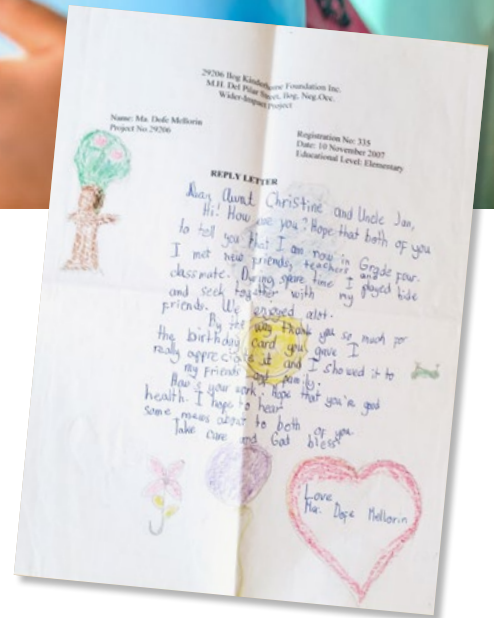 29206 Ilog Kinderhome Foundation Inc.
M.H. Del Pilar Street, Ilog, Neg.Occ.
Wider-Impact Project
Name: Ma. Dofe Mellorin
Project No.29206
Registration No: 335
Date: 10 November 2007
Educational Level: Elementary
REPLY LETTER
Dear Aunt Christine and Uncle Jan,
Hi! How are you? Hope that both of you
to tell you that I am now in Grade four.
I met new friends, teachers and
classmate. During spare time I played hide
and seek together with my
friends. We enjoyed alot.
By the way thank you so much for
the birthday card you gave I
really appreciate it and I showed it to
my friends and family.
How's your work. Hope that you're good
health. I hope to hear
some news about to both of you
Take care and God bless
Love
Ma. Dofe Mellorin